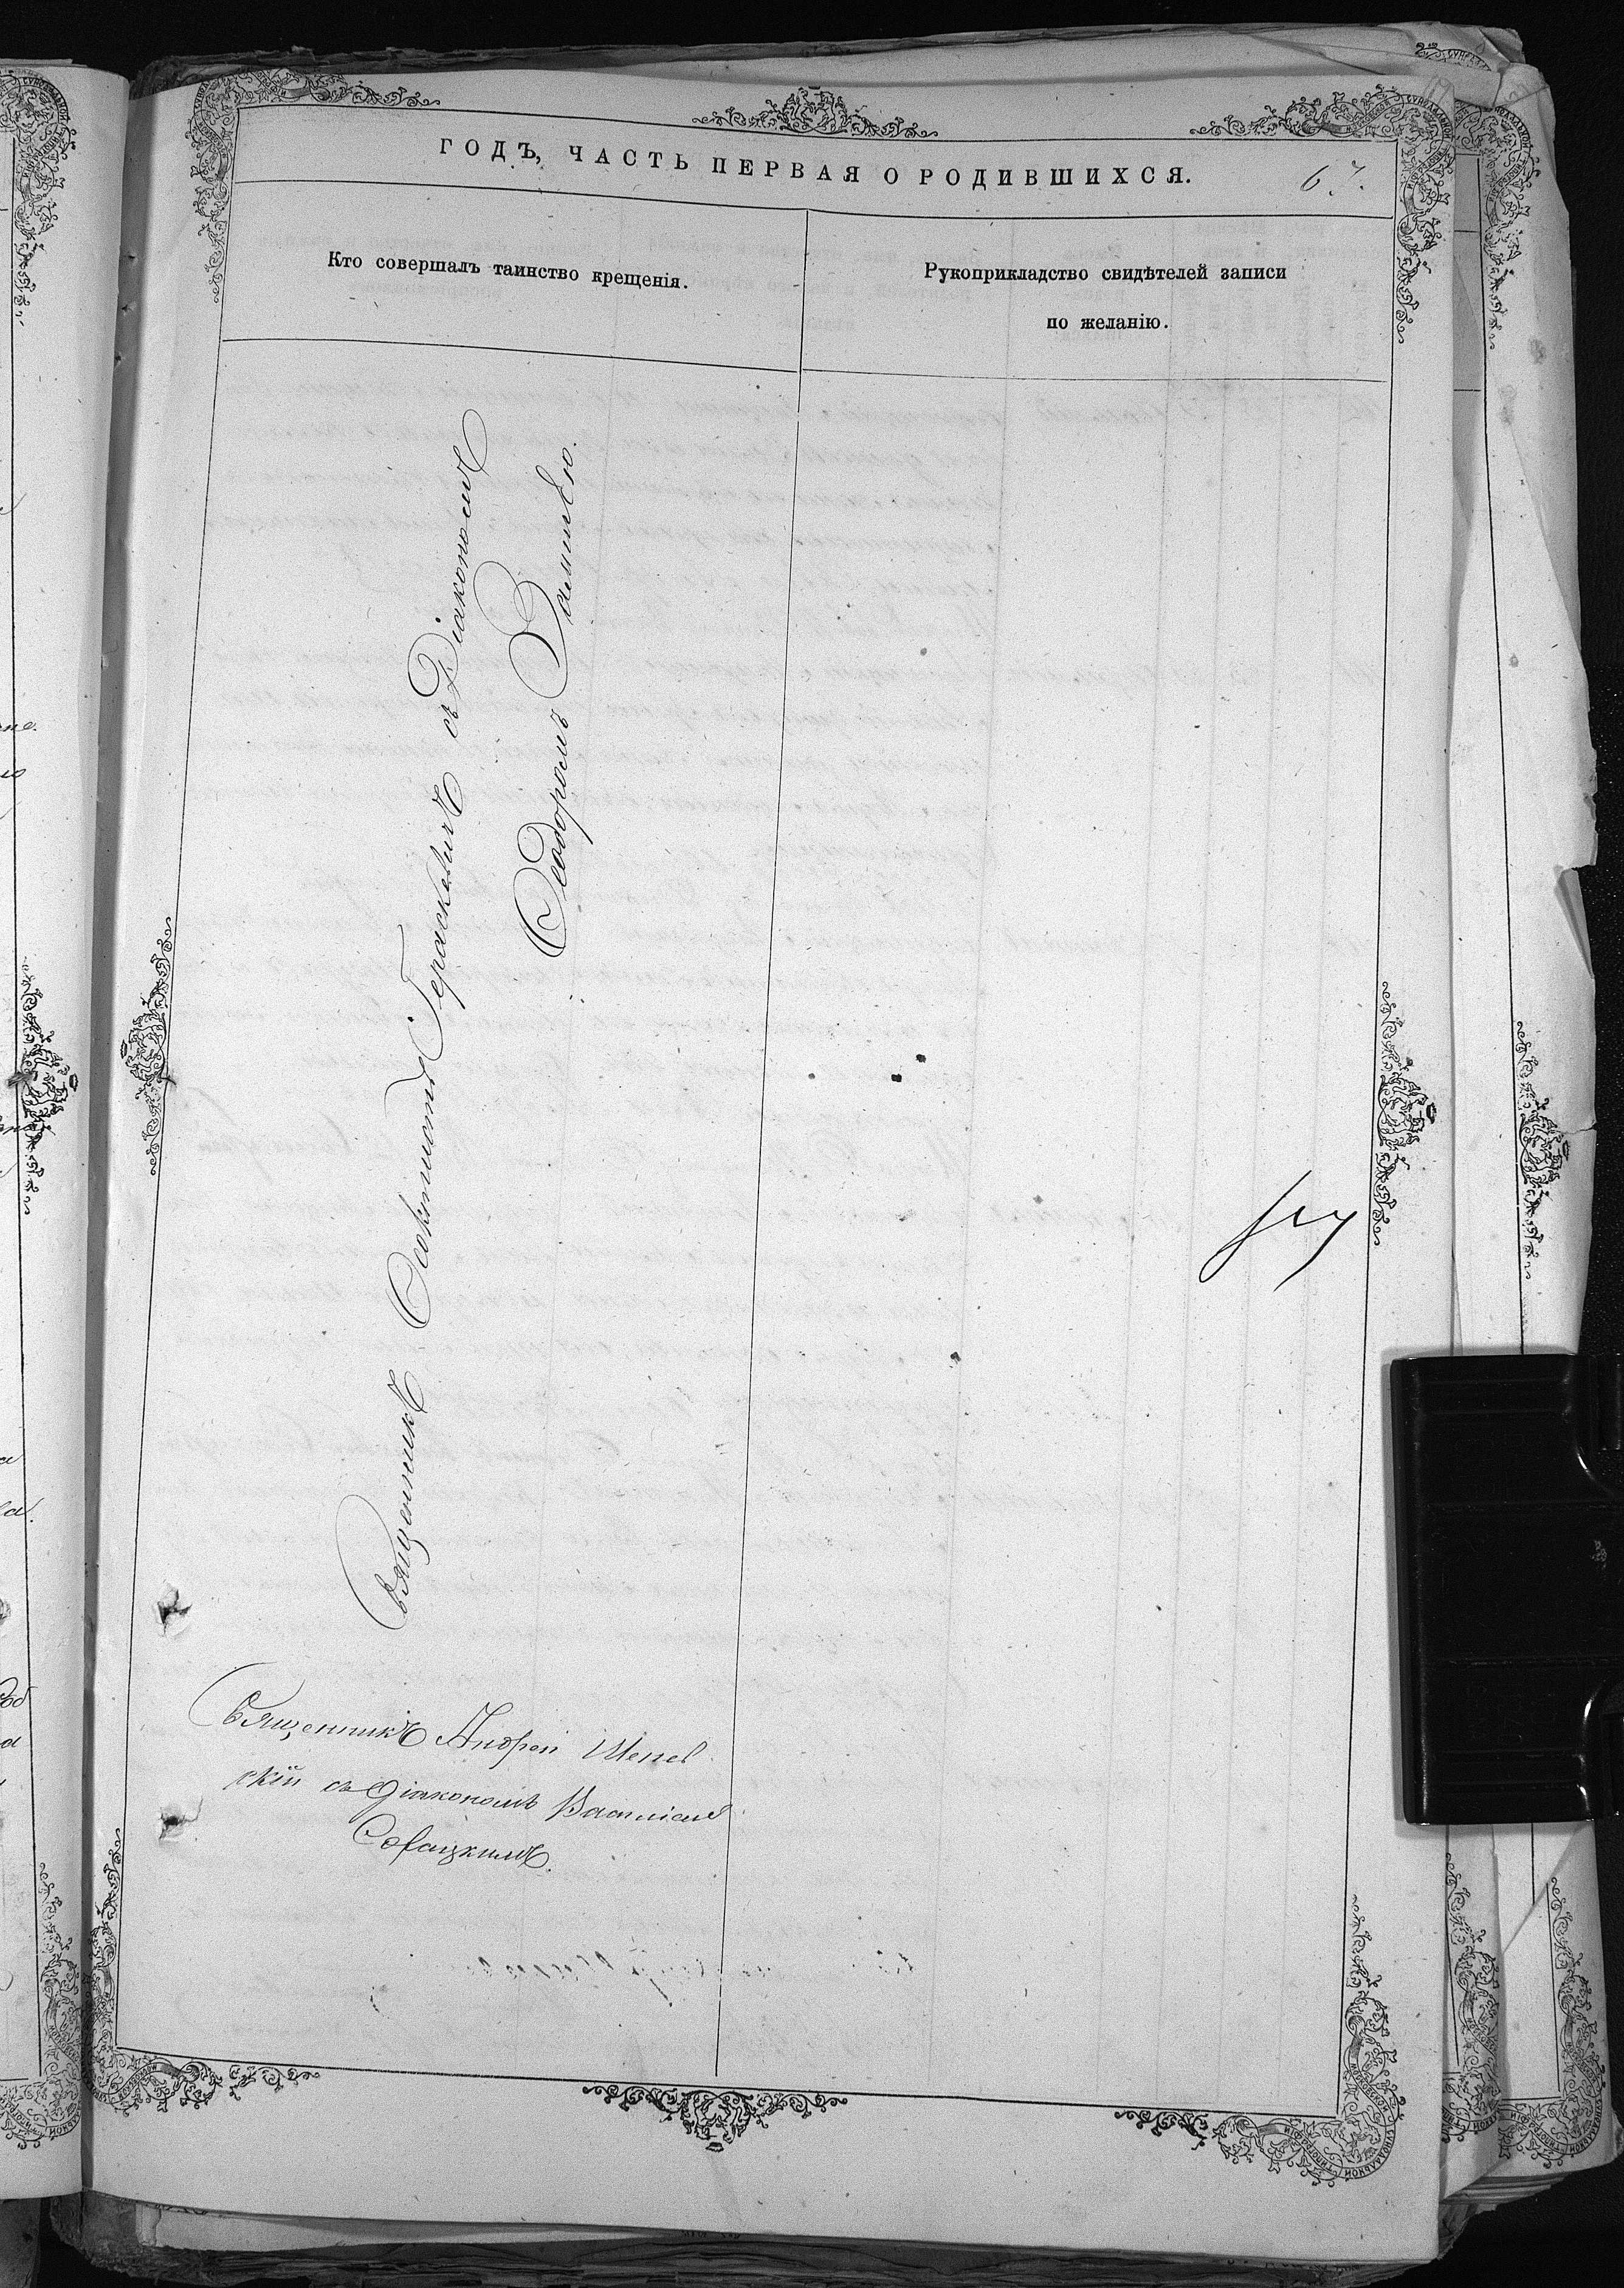 ГОДЪ, ЧАСТЬ ПЕРВАЯ О РОДИВШИХСЯ.
67.
Кто совершалъ таинство крещенія.
Рукоприкладство свидѣтелей записи
по желанію.
Священникъ Ѳеоктистъ Гераскевичъ съ Діакономъ
Ѳеодоромъ
Священникъ Андрей Шепев
скій съ Діакономъ Василіемъ